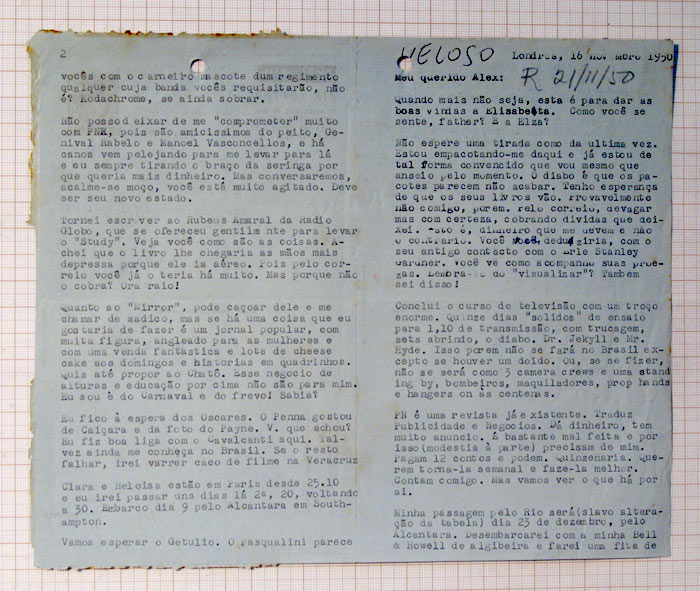 HELOSO
Londres, 16 novembro 1950
Meu querido Alex:
R 21/11/50
Quando mais não seja, esta é para dar as
boas vindas a Elisabeta. Como você se
sente, father? E a Elza?
Não espere uma tirada como da ultima vez.
Estou empacotando-me daqui e já estou de
tal forma convencido que vou mesmo que
anseio pelo momento. O diabo é que os pa-
cotes parecem não acabar. Tenho esperança
de que os seus livros vão. Provavelmente
não comigo, porem. Pelo correio, devagar
mas com certeza, cobrando dividas que dei-
xei. Isto é, dinheiro que me devem e não
o contrario. Você deduziria, com o
seu antigo contacto com o Erle Stanley
Gardner. Você vê como acompanho suas proe-
zas. Lembra-se do "visualizar"? Tambem
sei disso!
Conclui o curso de televisão com um troço
enorme. Quinze dias "solidos" de ensaio
para 1,10 de transmissão, com trucagem,
sets abrindo, o diabo. Dr. Jekyll e Mr.
Hyde. Isso porem não se fará no Brasil ex-
cepto se houver um doido. Ou, se se fizer,
não se será como 3 camera crews e uma stand
ing by, bombeiros, maquiladores, prop hands
e hangers on às centenas.
PN é uma revista já existente. Traduz
Publicidade e Negocios. Dá dinheiro, tem
muito anuncio. É bastante mal feita e por
isso(modestia à parte) precisam de mim.
Pagam 12 contos e podem. Quinzenaria. Que-
rem torna-la semanal e faze-la melhor.
Contam comigo. Mas vamos ver o que há por
aí.
Minha passagem pelo Rio será(slavo altera-
ção da tabela) dia 23 de dezembro, pelo
Alcantara. Desembarcarei com a minha Bell
& Howell de algibeira e farei uma fita de
2
vocês com o carneiro mascote dum regimento
qualquer cuja banda vocês requisitarão, não
é? Kodachrome, se ainda sobrar.
Não possodeixar de me "comprometer" muito
com PNK, pois são amicissimos do peito, Ge-
nival Rabelo e Manoel Vasconcellos, e há
canos vem pelejando para me levar para lá
e eu sempre tirando o braço da seringa por
que queria mais dinheiro. Mas conversaremos,
acalme-se moço, você está muito agitado. Deve
ser seu novo estado.
Tornei escrever ao Rubens Amaral da Radio
Globo, que se ofereceu gentilm nte para levar
o "Study". Veja você como são as coisas. A-
chei que o livro lhe chegaria às mãos mais
depressa porque ele ia aéreo. Pois pelo cor-
reio você já o teria há muito. Mas porque não
o cobra? Ora raio!
Quanto ao "Mirror", pode caçoar dele e me
chamar de sadico, mas se há uma coisa que eu
gostaria de fazer é um jornal popular, com
muita figura, angleado para as mulheres e
com uma venda fantastica e lots de cheese
cake aos domingos e historias em quadrinhos.
Quis até propor ao Chatô. Esse negocio de
alturas e educação por cima não são para mim.
Eu sou é do Carnaval e do frevo! Sabia?
Eu fico à espera dos Oscares. O Penna gostou
de Caiçara e da foto do Fayne. V. que achou?
Eu fiz boa liga com o Cavalcanti aqui. Tal-
vez ainda me conheça no Brasil. Se o resto
falhar, irei varrer caco de filme na Veracruz
Clara e Heloisa estão em Paris desde 25.10
e eu irei passar uns dias lá 2ª, 20, voltando
a 30. Embarco dia 9 pelo Alcantara em South-
ampton.
Vamos esperar o Getulio. O Pasqualini parece